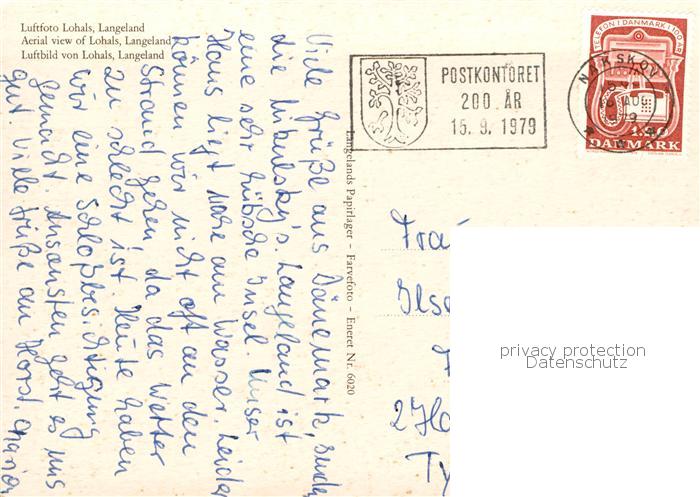 Luftfoto Lohals, Langeland
Aerial view of Lohals, Langeland
Luftbild von Lohals, Langeland
POSTKONTORET
200 ÅR
15. 9. 1979
NAKSKOV
TELEFON I DANMARK 100 ÅR
DANMARK
Viele Grüße aus Dänemark,
die Langeland ist
eine sehr hübsche Insel. Unser
Haus liegt nahe am Wasser. Leider
können wir nicht oft an den
Strand gehen, da das Wetter
zu schlecht ist. Heute haben
wir eine Schloßbesichtigung
gemacht. Ansonsten geht es uns
gut. Viele Grüße an Horst. Marion
Langelands Papirlager - Farvefoto - Eneret Nr. 6020
Frau
Ilse
privacy protection
Datenschutz